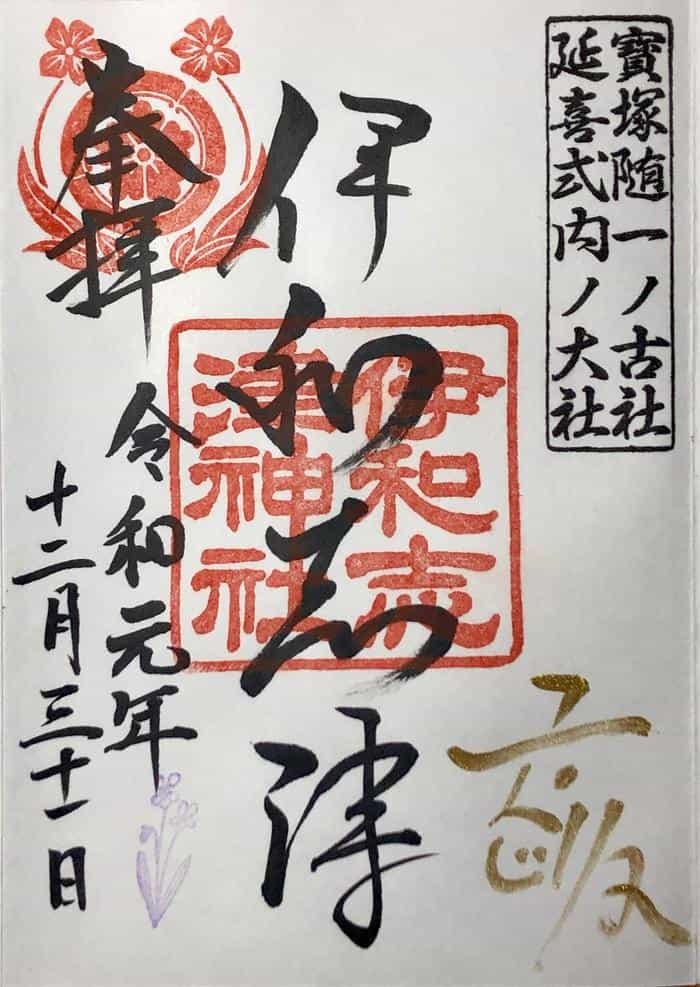 寶塚随一ノ古社
延喜式内ノ大社
伊和志津
伊和志
津神社
奉拝
令和元年
十二月三十一日